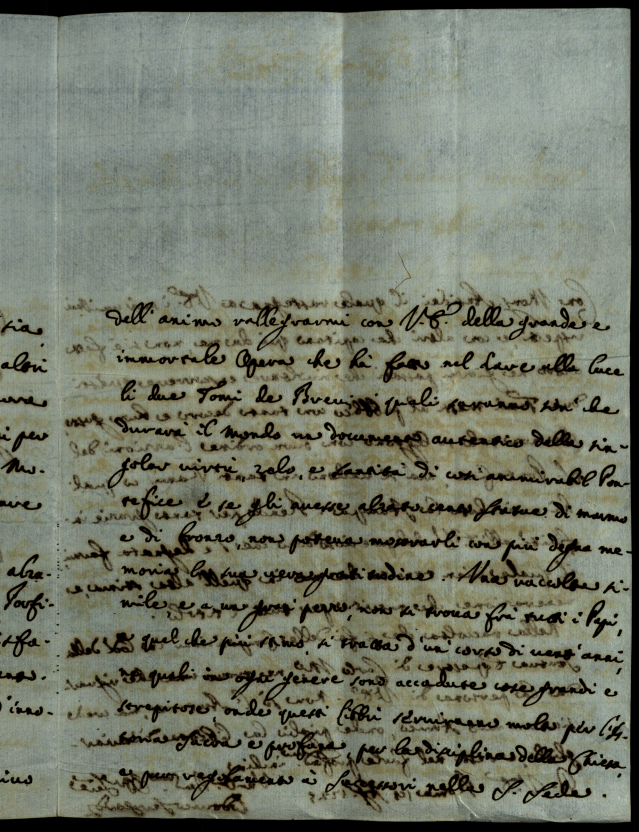 dell'animo rallegrarmi con V.E. della grande e
immortale Opera che hà fatto nel dare alla luce
li due Tomi de Brevi, i quali saranno, sin che
durarà il Mondo un documento autentico della sin-
golar virtù, zelo, e santità di così ammirabil Pon-
tefice e se gli avesse alzato statue di marmo
e di bronzo non poteva mostrarli con più degna me-
moria la sua vera gratitudine. Una raccolta si-
mile, e a un gran pezzo, non si trova frà tutti i Papi,
e quel che più stimo, si tratta d'un corso di venti anni,
ne quali in ogni genere sono accadute cose grandi e
strepitose, onde questi libri serviranno molto per l'Is-
toria sacra e profana, per la disciplina della Chiesa,
e per regolamento à Successori nella S. Sede.
sia
altri
per
Mo-